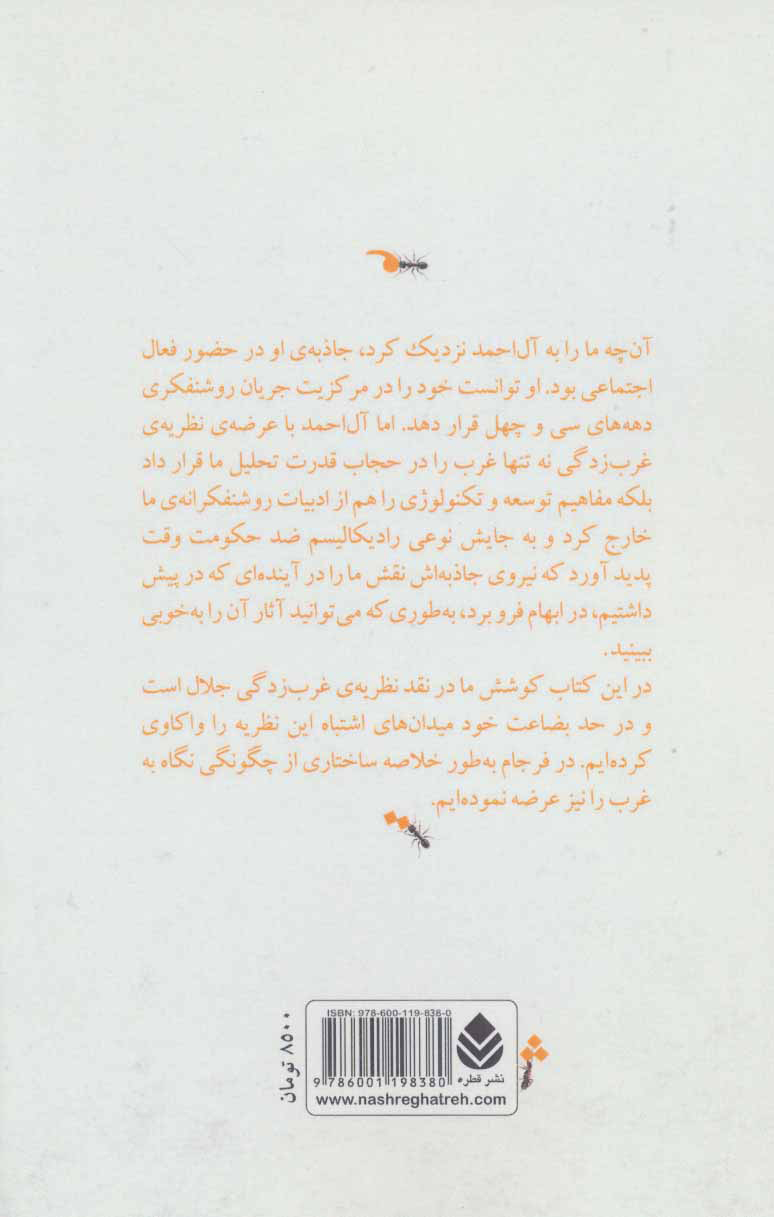 آن‌چه ما را به آل‌احمد نزدیک کرد، جاذبه‌ی او در حضور فعال
اجتماعی بود. او توانست خود را در مرکزیت جریان روشنفکری
دهه‌های سی و چهل قرار دهد. اما آل‌احمد با عرضه‌ی نظریه‌ی
غرب‌زدگی نه تنها غرب را در حجاب قدرت تحلیل ما قرار داد
بلکه مفاهیم توسعه و تکنولوژی را هم از ادبیات روشنفکرانه‌ی ما
خارج کرد و به جایش نوعی رادیکالیسم ضد حکومت وقت
پدید آورد که نیروی جاذبه‌اش نقش ما را در آینده‌ای که در پیش
داشتیم، در ابهام فرو برد، به‌طوری که می‌توانید آثار آن را به‌خوبی
ببینید.
در این کتاب کوشش ما در نقد نظریه‌ی غرب‌زدگی جلال است
و در حد بضاعت خود میدان‌های اشتباه این نظریه را واکاوی
کرده‌ایم. در فرجام به‌طور خلاصه ساختاری از چگونگی نگاه به
غرب را نیز عرضه نموده‌ایم.
ISBN: 978-600-119-838-0
9 786001 198380
نشر قطره
www.nashreghatreh.com
۸۵۰۰ تومان